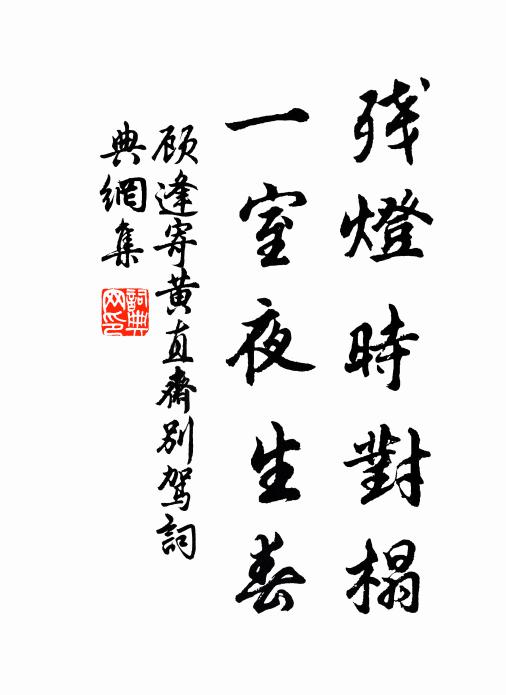 残燈時對榻
一室夜生春
顾逢寄黄直齋别駕詞
典網集
詞典網印